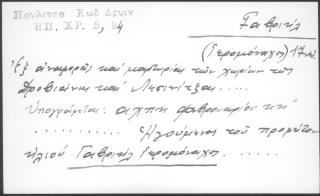 Πουλιτσα Κωδ Δρυιν
ΗΠ. ΧΡ. 5, 94
Γαβριήλ
(Ιερομόναχος) 17
Ἐξ ἀναφορᾶς καὶ μαρτυρίας τῶν χωρίων τῆς
Δροβιάνης καὶ Λεσινίτζας ....
Ὑπογράφεται: αλπη φεβρουαρίου κή
.......... Ἡγούμενος τοῦ προφήτου
ηλιοῦ Γαβριήλ Ιερομόναχος .....